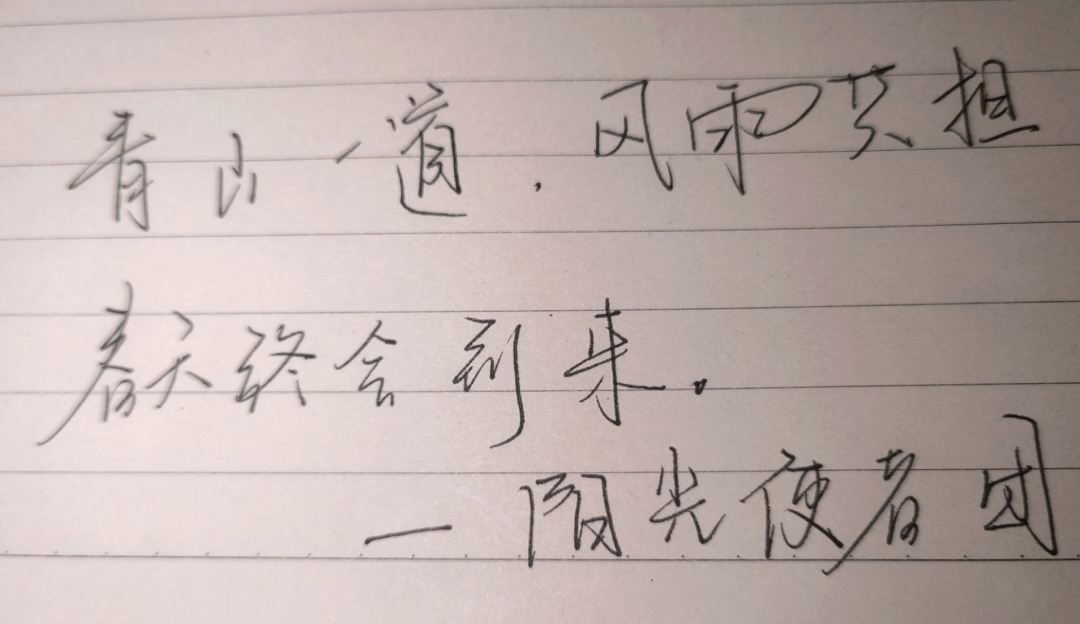 青山一道,风雨共担
春天终会到来.
—阳光使者团